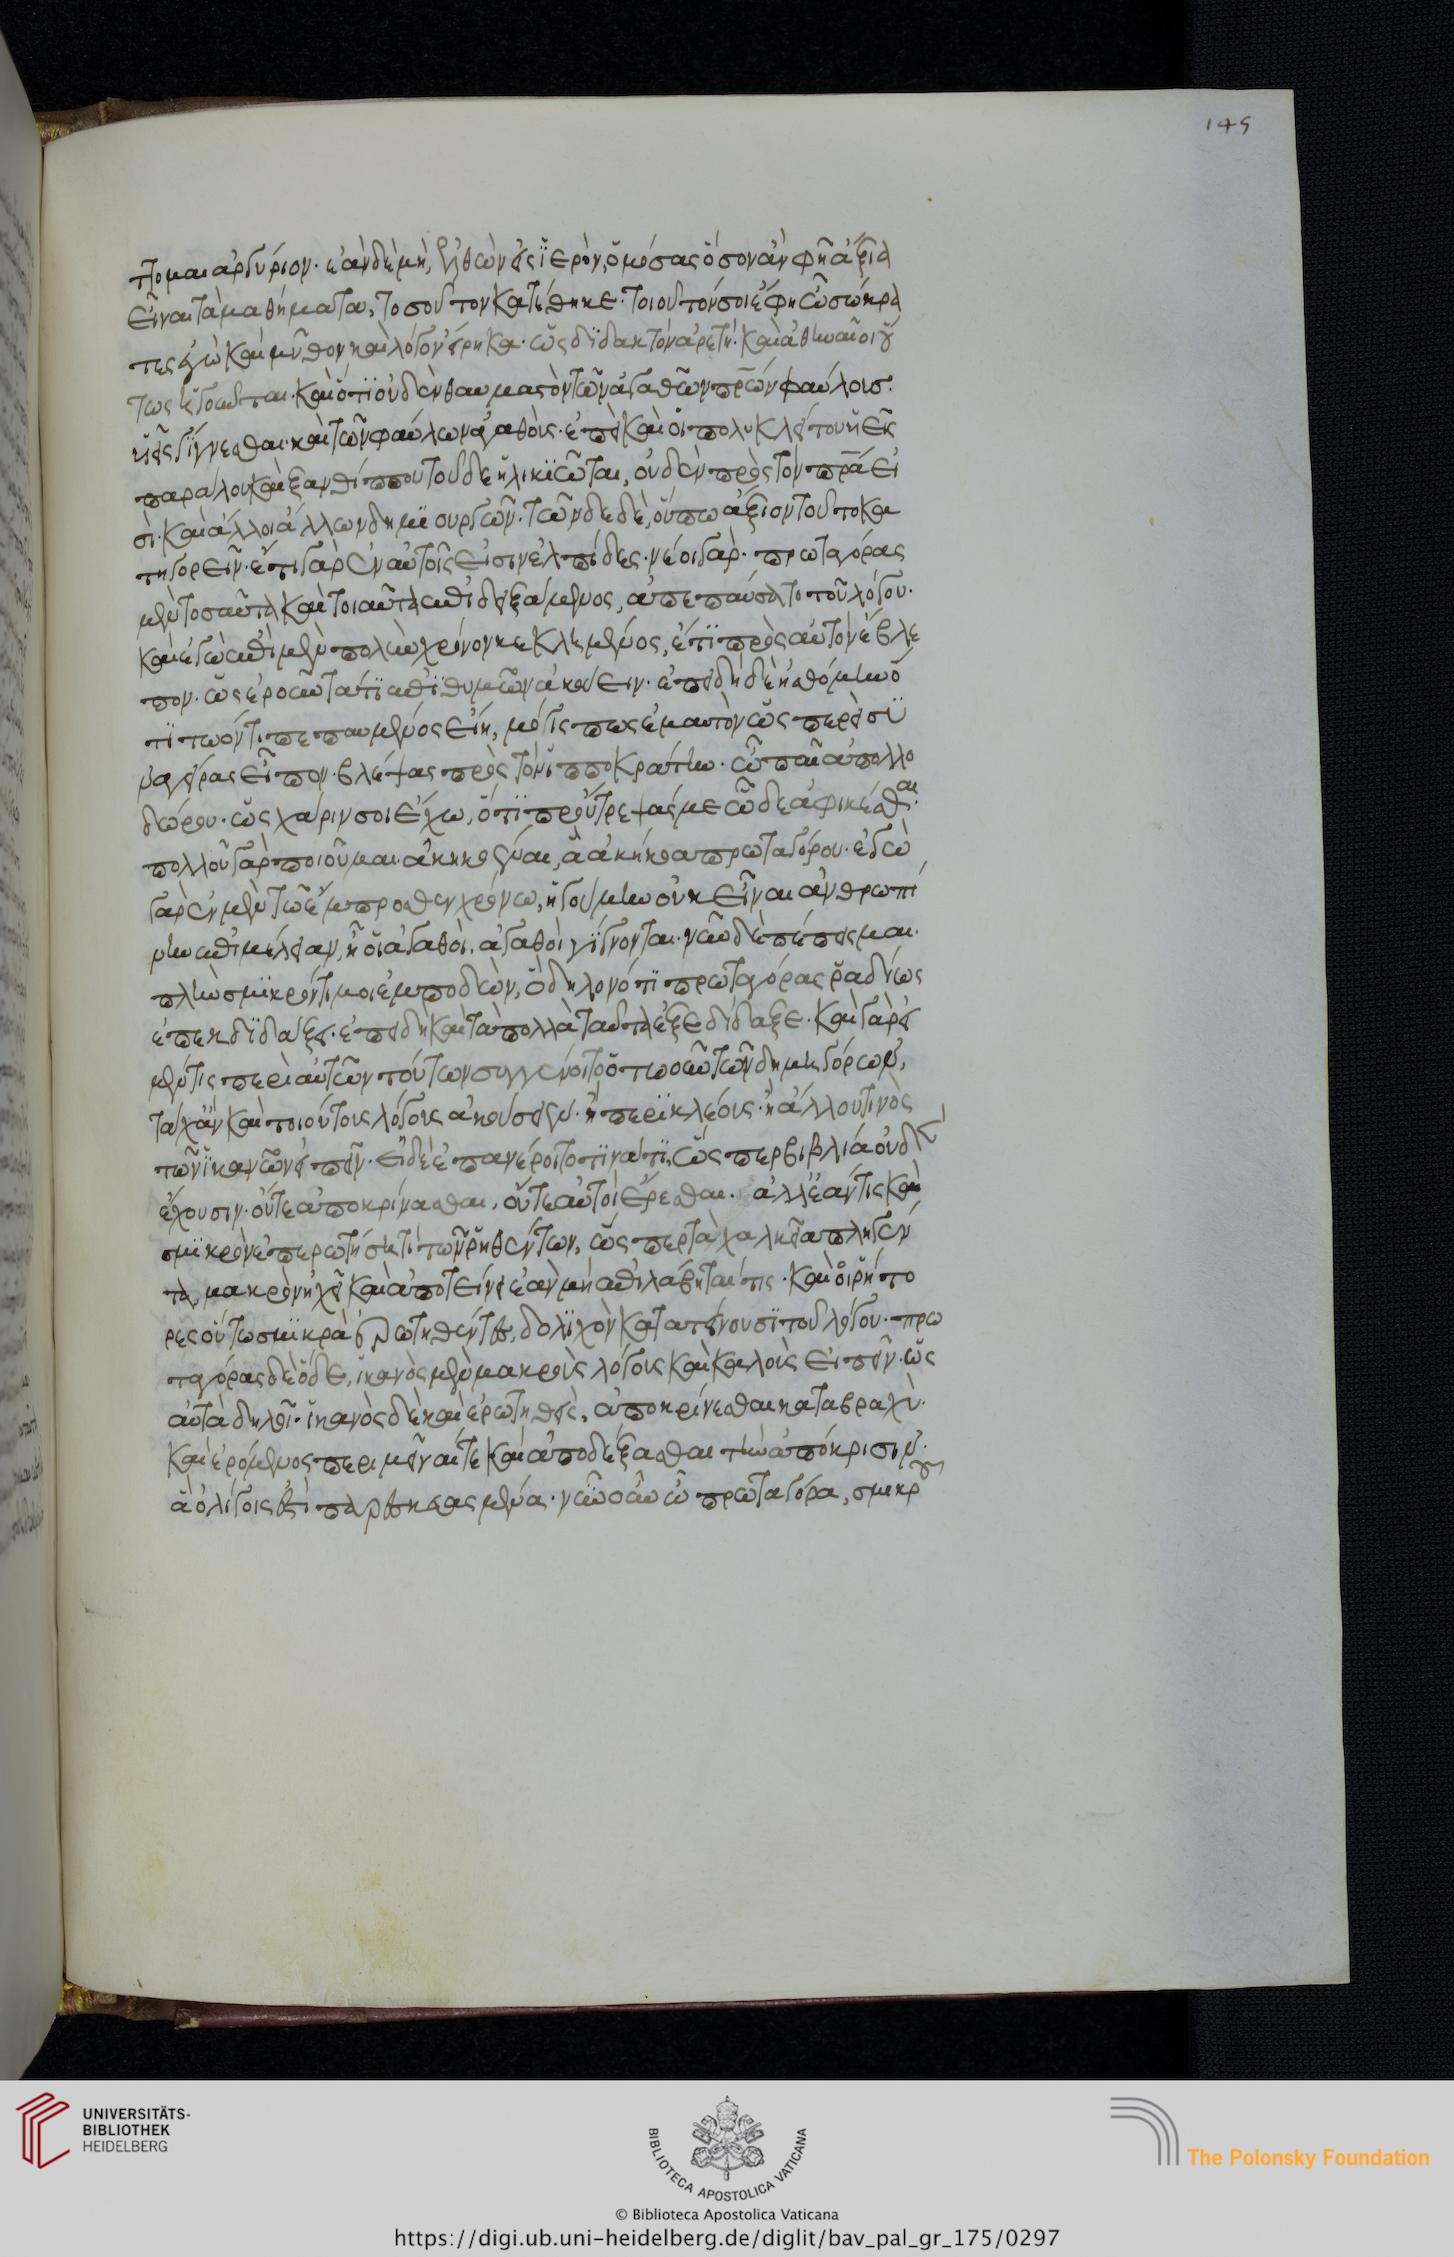 149
πομαι ἀργύριον· ἐὰν δὲ μὴ, ἐλθὼν εἰς ἱερὸν, ὀμόσας ὅσον ἂν φῇ ἄξια
εἶναι τὰ μαθήματα, τοσοῦτον κατέθηκε· τοιοῦτόν σοι ἔφη ὦ σώκρα
τες ἐγὼ καὶ μῦθον καὶ λόγον εἴρηκα· ὡς διδακτὸν ἀρετή· καὶ ἀθηναῖοι οὕ
τως ἡγοῦνται· καὶ ὅτι οὐδὲν θαυμαστὸν τῶν ἀγαθῶν πρων φαύλοισ
υἱεῖς γίγνεσθαι· καὶ τῶν φαύλων ἀγαθοὺς· ἐπεὶ καὶ οἱ πολυκλείτου υἱεῖς
παράλου καὶ ξανθίππου τοῦδε ἡλικιῶται, οὐδὲν πρὸς τὸν πρα εἰ
σὶ· καὶ ἄλλοι ἄλλων δημιουργῶν· τῶνδε δὲ, οὔπω ἄξιον τοῦτο κα
τηγορεῖν· ἔτι γὰρ ἐν αὐτοῖς εἰσιν ἐλπίδες· νέοι γάρ· πρωταγόρας
μὲν τοσαῦτα καὶ τοιαῦτα ἐπιδειξάμενος, ἀπεπαύσατο τοῦ λόγου·
καὶ ἐγὼ ἐπὶ μὲν πολὺν χρόνον κεκλημένος, ἔτι πρὸς αὐτὸν ἔβλε
πον· ὡς ἐροῦντά τι ἐπιθυμῶν ἀκούειν· ἐπειδὴ δὲ ἠσθόμην ὅ
τι τῷ ὄντι πεπαυμένος εἴη, μόγις πως ἐμαυτὸν ὡσπερεὶ συ
ναγείρας εἶπον· βλέψας πρὸς τὸν ἱπποκράτην· ὦ παῖ ἀπολλο
δώρου· ὡς χάριν σοι ἔχω, ὅτι προὔτρεψάς με ὧδε ἀφικέσθαι·
πολλοῦ γὰρ ποιοῦμαι ἀκηκοέναι, ἃ ἀκήκοα πρωταγόρου· ἐγὼ
γὰρ ἐν μὲν τῷ ἔμπροσθεν χρόνω, ἡγούμην οὐκ εἶναι ἀνθρωπί
νην ἐπιμέλειαν, ᾗ οἱ ἀγαθοὶ, ἀγαθοὶ γίγνονται· νῦν δὲ πέπεισμαι·
πλὴν σμικρόν τι μοι ἐμποδὼν, ὃ δηλονότι πρωταγόρας ῥαδίως
ἐπεκδιδάξει· ἐπειδὴ καὶ τὰ πολλὰ ταῦτα ἐξεδίδαξε· καὶ γὰρ εἰ
μέν τις περὶ αὐτῶν τούτων συγγένοιτο ὁτῳοῦν τῶν δημηγόρων,
τάχ' ἂν καὶ τοιούτους λόγους ἀκούσειεν· ἢ περικλέους· ἢ ἄλλου τινὸς
τῶν ἱκανῶν εἰπεῖν· εἰ δὲ ἐπανέροιτο τινά τι, ὥσπερ βιβλία οὐδὲν
ἔχουσιν· οὔτε ἀποκρίνασθαι, οὔτε αὐτοὶ ἔρεσθαι· ἀλλ' ἐάν τις καὶ
σμικρὸν ἐπερωτήσῃ τι τῶν ῥηθέντων, ὥσπερ τὰ χαλκεῖα πληγέν
τα, μακρὸν ἠχεῖ καὶ ἀποτείνει ἐὰν μὴ ἐπιλάβηταί τις· καὶ οἱ ῥήτο
ρες οὕτω σμικρὰ ἐρωτηθέντες, δολιχὸν κατατείνουσι τοῦ λόγου· πρω
ταγόρας δὲ ὅδε, ἱκανὸς μὲν μακροὺς λόγους καὶ καλοὺς εἰπεῖν· ὡς
αὐτὰ δηλοῖ· ἱκανὸς δὲ καὶ ἐρωτηθεὶς, ἀποκρίνεσθαι κατα βραχὺ·
καὶ ἐρόμενος περιμεῖναί τε καὶ ἀποδέξασθαι τὴν ἀπόκρισιν·
ἃ ὀλίγοις ἐστὶ παρεσκευασμένα· νῦν οὖν ὦ πρωταγόρα, σμικρ
UNIVERSITÄTS-
BIBLIOTHEK
HEIDELBERG
BIBLIOTECA APOSTOLICA VATICANA
The Polonsky Foundation
© Biblioteca Apostolica Vaticana
https://digi.ub.uni-heidelberg.de/diglit/bav_pal_gr_175/0297